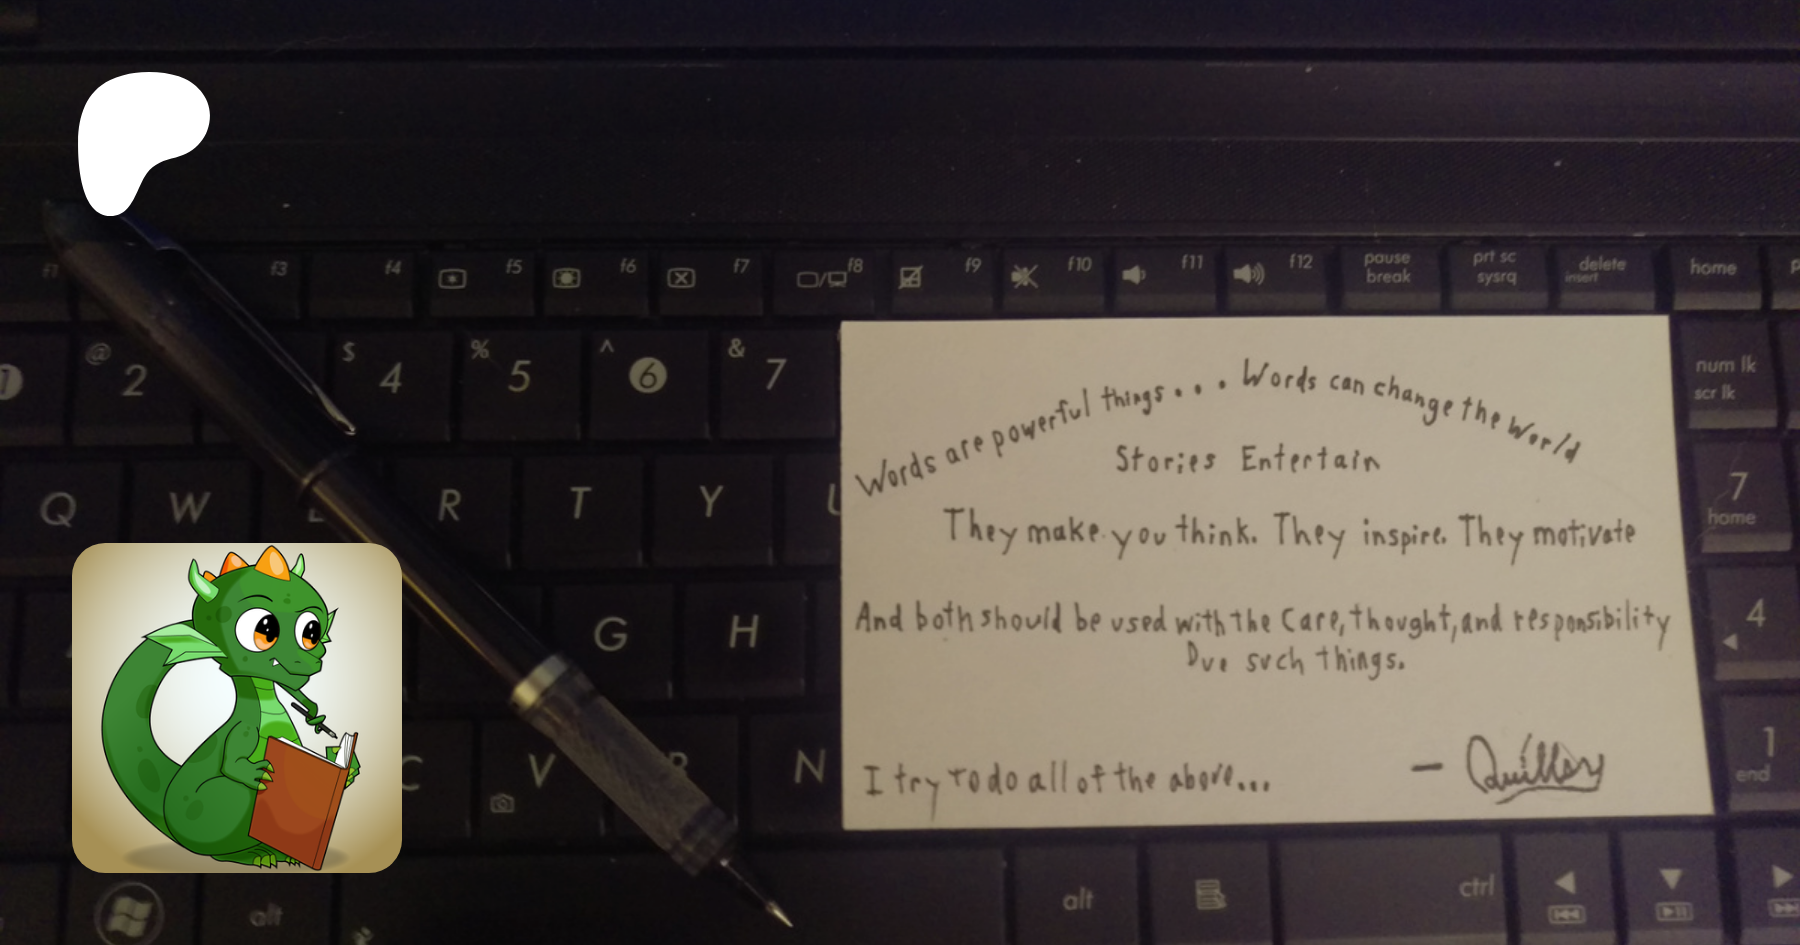 f1 f3 f4 f5 f6 f7 f8 f9 f10 f11 f12 pause break prt sc sysrq delete insert home
1 @ 2 $ 4 % 5 ^ 6 & 7 num lk scr lk
Words are powerful things... Words can change the World
Stories Entertain
They make you think. They inspire. They motivate
Q W E R T Y U 7 home
And both should be used with the Care, thought, and responsibility
Due such things.
G H 4
I try to do all of the above... - Quillery
C V B N 1 end
alt alt ctrl